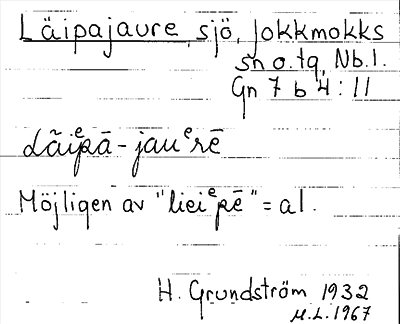 Läipajaure, sjö, Jokkmokks
sn o. tg, Nb.l.
Gn 7 b 4 : 11
Lãiᵉpā - jauᵉrē
Möjligen av "lieiᵉpē" = al.
H. Grundström 1932
M.L. 1967